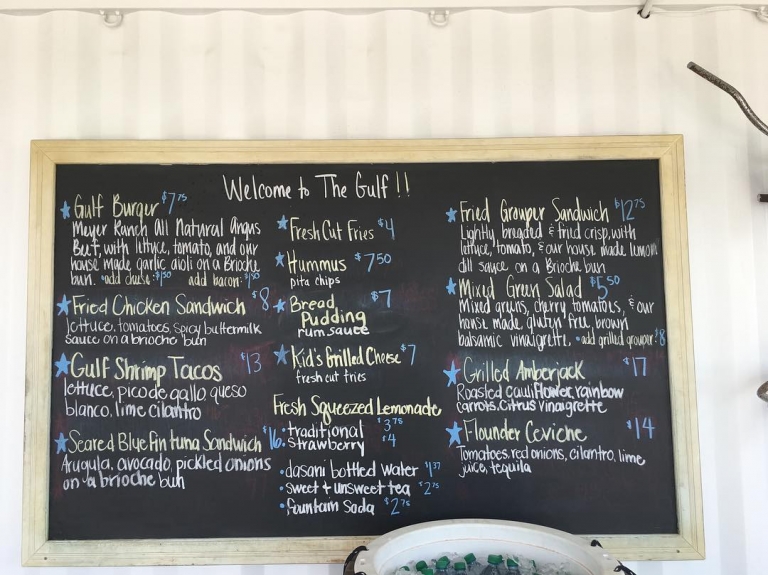 Welcome to The Gulf!!
Gulf Burger $7.75
Meyer Ranch All Natural Angus
Beef, with lettuce, tomato, and our
house made garlic aioli on a Brioche
bun. •add cheese: $1.50 add bacon: $1.50
Fried Chicken Sandwich $8
lettuce, tomatoes, spicy buttermilk
sauce on a brioche bun
Gulf Shrimp Tacos $13
lettuce, pico de gallo, queso
blanco, lime, cilantro
Seared Bluefin tuna Sandwich $16
Arugula, avocado, pickled onions
on a brioche bun
Fresh Cut Fries $4
Hummus $7.50
pita chips
Bread $7
Pudding
rum sauce
Kid's Grilled Cheese $7
fresh cut fries
Fresh Squeezed Lemonade
•traditional $3.75
•strawberry $4
•dasani bottled water $1.37
•sweet + unsweet tea $2.75
•fountain soda $2.75
Fried Grouper Sandwich $12.75
Lightly breaded & fried crisp, with
lettuce, tomato, & our house made lemon
dill sauce on a Brioche bun
Mixed Green Salad $5.50
Mixed greens, cherry tomatoes, & our
house made, gluten free, brown
balsamic vinaigrette. •add grilled grouper: $8
Grilled Amberjack $17
Roasted cauliflower, rainbow
carrots, citrus vinaigrette
Flounder Ceviche $14
Tomatoes, red onions, cilantro, lime
juice, tequila